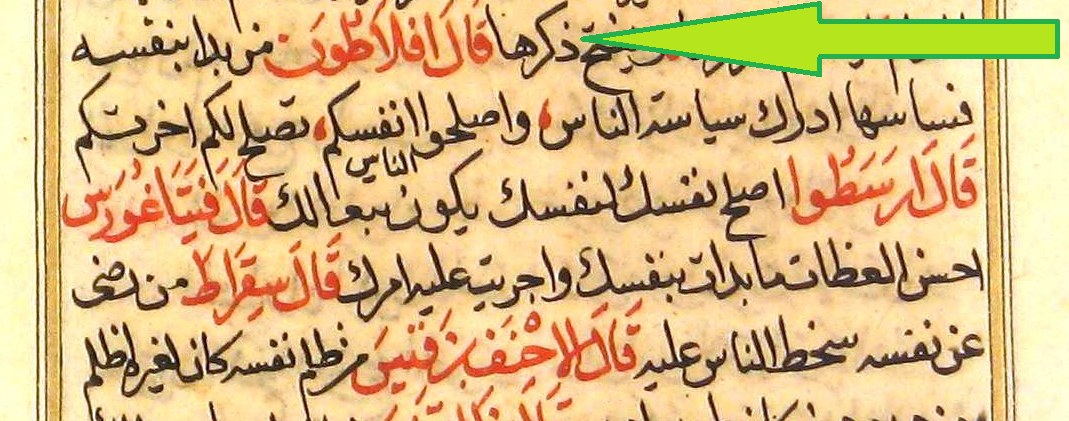 يقبح ذكرها قال افلاطون من بدا بنفسه
فساسها ادرك سياسة الناس، واصلحوا انفسكم، تصلح لكم اخرتكم
قال ارسطوا اصلح نفسك لنفسك يكون الناس تبعا لك قال فيثاغورس
احسن العظات ما بدات بنفسك واجريت عليه امرك قال سقراط من رضي
عن نفسه سخط الناس عليه قال الاحنف بن قيس من ظلم نفسه كان لغيره اظلم